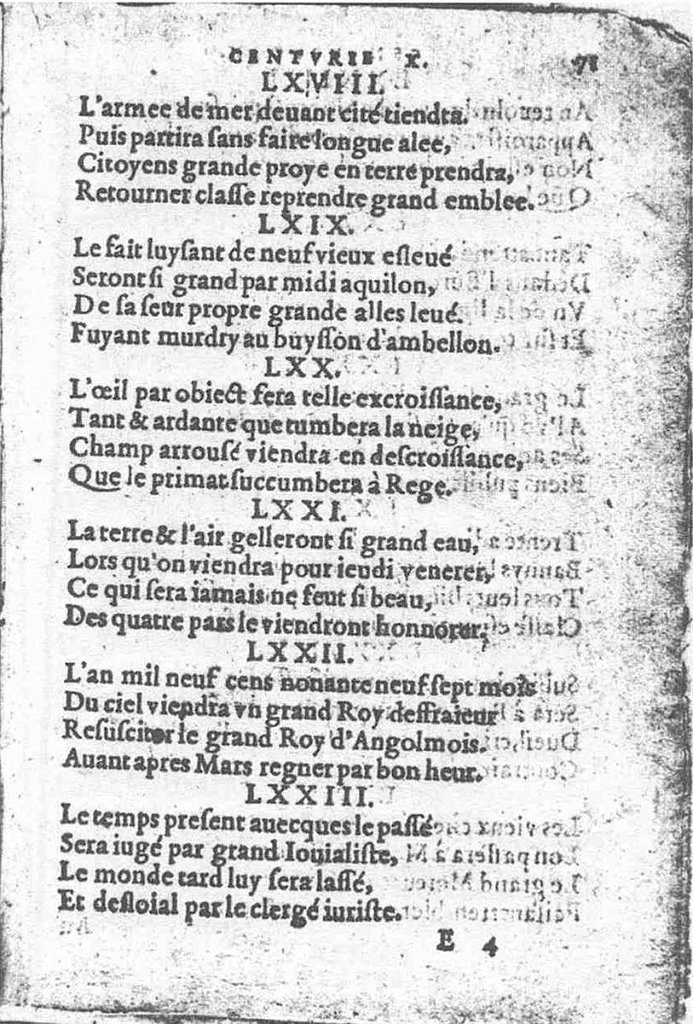 CENTVRIE X. 71
LXVIII.
L'armee de mer deuant cité tiendra.
Puis partira sans faire longue alee,
Citoyens grande proye en terre prendra,
Retourner classe reprendre grand emblee.
LXIX.
Le fait luysant de neuf vieux esleué
Seront si grand par midi aquilon,
De sa seur propre grande alles leué.
Fuyant murdry au buysson d'ambellon.
LXX.
L'œil par obiect fera telle excroissance,
Tant & ardante que tumbera la neige,
Champ arrousé viendra en descroissance,
Que le primat succumbera à Rege.
LXXI.
La terre & l'air gelleront si grand eau,
Lors qu'on viendra pour ieudi venerer,
Ce qui sera iamais ne feut si beau,
Des quatre pars le viendront honnorer.
LXXII.
L'an mil neuf cens nonante neuf sept mois
Du ciel viendra vn grand Roy deffraieur
Resusciter le grand Roy d'Angolmois.
Auant apres Mars regner par bon heur.
LXXIII.
Le temps present auecques le passé
Sera iugé par grand Iouialiste,
Le monde tard luy sera lassé,
Et desloial par le clergé iuriste.
E 4